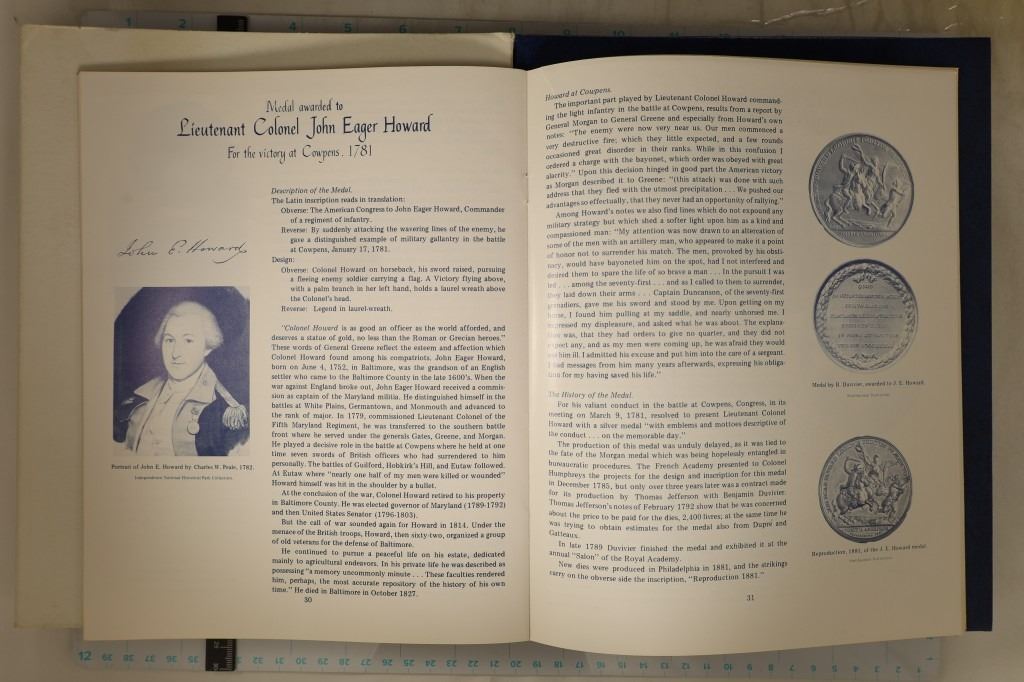 Medal awarded to
Lieutenant Colonel John Eager Howard
For the victory at Cowpens, 1781
Description of the Medal.
The Latin inscription reads in translation:
Obverse: The American Congress to John Eager Howard, Commander
of a regiment of infantry.
Reverse: By suddenly attacking the wavering lines of the enemy, he
gave a distinguished example of military gallantry in the battle
at Cowpens, January 17, 1781.
Design:
Obverse: Colonel Howard on horseback, his sword raised, pursuing
a fleeing enemy soldier carrying a flag. A Victory flying above,
with a palm branch in her left hand, holds a laurel wreath above
the Colonel's head.
Reverse: Legend in laurel-wreath.
"Colonel Howard is as good an officer as the world afforded, and
deserves a statue of gold, no less than the Roman or Grecian heroes."
These words of General Greene reflect the esteem and affection which
Colonel Howard found among his compatriots. John Eager Howard,
born on June 4, 1752, in Baltimore, was the grandson of an English
settler who came to the Baltimore County in the late 1600's. When the
war against England broke out, John Eager Howard received a commis-
sion as captain of the Maryland militia. He distinguished himself in the
battles at White Plains, Germantown, and Monmouth and advanced to
the rank of major. In 1779, commissioned Lieutenant Colonel of the
Fifth Maryland Regiment, he was transferred to the southern battle
front where he served under the generals Gates, Greene, and Morgan.
He played a decisive role in the battle at Cowpens where he held at one
time seven swords of British officers who had surrendered to him
personally. The battles of Guilford, Hobkirk's Hill, and Eutaw followed.
At Eutaw where "nearly one half of my men were killed or wounded"
Howard himself was hit in the shoulder by a bullet.
At the conclusion of the war, Colonel Howard retired to his property
in Baltimore County. He was elected governor of Maryland (1789-1792)
and then United States Senator (1796-1803).
But the call of war sounded again for Howard in 1814. Under the
menace of the British troops, Howard, then sixty-two, organized a group
of old veterans for the defense of Baltimore.
He continued to pursue a peaceful life on his estate, dedicated
mainly to agricultural endeavors. In his private life he was described as
possessing "a memory uncommonly minute . . . These faculties rendered
him, perhaps, the most accurate repository of the history of his own
time." He died in Baltimore in October 1827.
30
John E. Howard
Portrait of John E. Howard by Charles W. Peale, 1782.
Independence National Historical Park Collection.
Howard at Cowpens.
The important part played by Lieutenant Colonel Howard command-
ing the light infantry in the battle at Cowpens, results from a report by
General Morgan to General Greene and especially from Howard's own
notes: "The enemy were now very near us. Our men commenced a
very destructive fire; which they little expected, and a few rounds
occasioned great disorder in their ranks. While in this confusion I
ordered a charge with the bayonet, which order was obeyed with great
alacrity." Upon this decision hinged in good part the American victory
as Morgan described it to Greene: "(this attack) was done with such
address that they fled with the utmost precipitation . . . We pushed our
advantages so effectually, that they never had an opportunity of rallying."
Among Howard's notes we also find lines which do not expound any
military strategy but which shed a softer light upon him as a kind and
compassioned man: "My attention was now drawn to an altercation of
some of the men with an artillery man, who appeared to make it a point
of honor not to surrender his match. The men, provoked by his obsti-
nacy, would have bayoneted him on the spot, had I not interfered and
desired them to spare the life of so brave a man . . . In the pursuit I was
led . . . among the seventy-first . . . and as I called to them to surrender,
they laid down their arms . . . Captain Duncanson, of the seventy-first
grenadiers, gave me his sword and stood by me. Upon getting on my
horse, I found him pulling at my saddle, and nearly unhorsed me. I
expressed my displeasure, and asked what he was about. The explana-
was, that they had orders to give no quarter, and they did not
expect any, and as my men were coming up, he was afraid they would
him ill. I admitted his excuse and put him into the care of a sergeant.
I had messages from him many years afterwards, expressing his obliga-
tion for my having saved his life."
The History of the Medal.
For his valiant conduct in the battle at Cowpens, Congress, in its
meeting on March 9, 1781, resolved to present Lieutenant Colonel
Howard with a silver medal "with emblems and mottoes descriptive of
the conduct . . . on the memorable day."
The production of this medal was unduly delayed, as it was tied to
the fate of the Morgan medal which was being hopelessly entangled in
bureaucratic procedures. The French Academy presented to Colonel
Humphreys the projects for the design and inscription for this medal
in December 1785, but only over three years later was a contract made
for its production by Thomas Jefferson with Benjamin Duvivier.
Thomas Jefferson's notes of February 1792 show that he was concerned
about the price to be paid for the dies, 2,400 livres; at the same time he
was trying to obtain estimates for the medal also from Dupré and
Gatteaux.
In late 1789 Duvivier finished the medal and exhibited it at the
annual "Salon" of the Royal Academy.
New dies were produced in Philadelphia in 1881, and the strikings
carry on the obverse side the inscription, "Reproduction 1881."
31
Medal by B. Duvivier, awarded to J. E. Howard.
Reproduction, 1881, of the J. E. Howard medal.